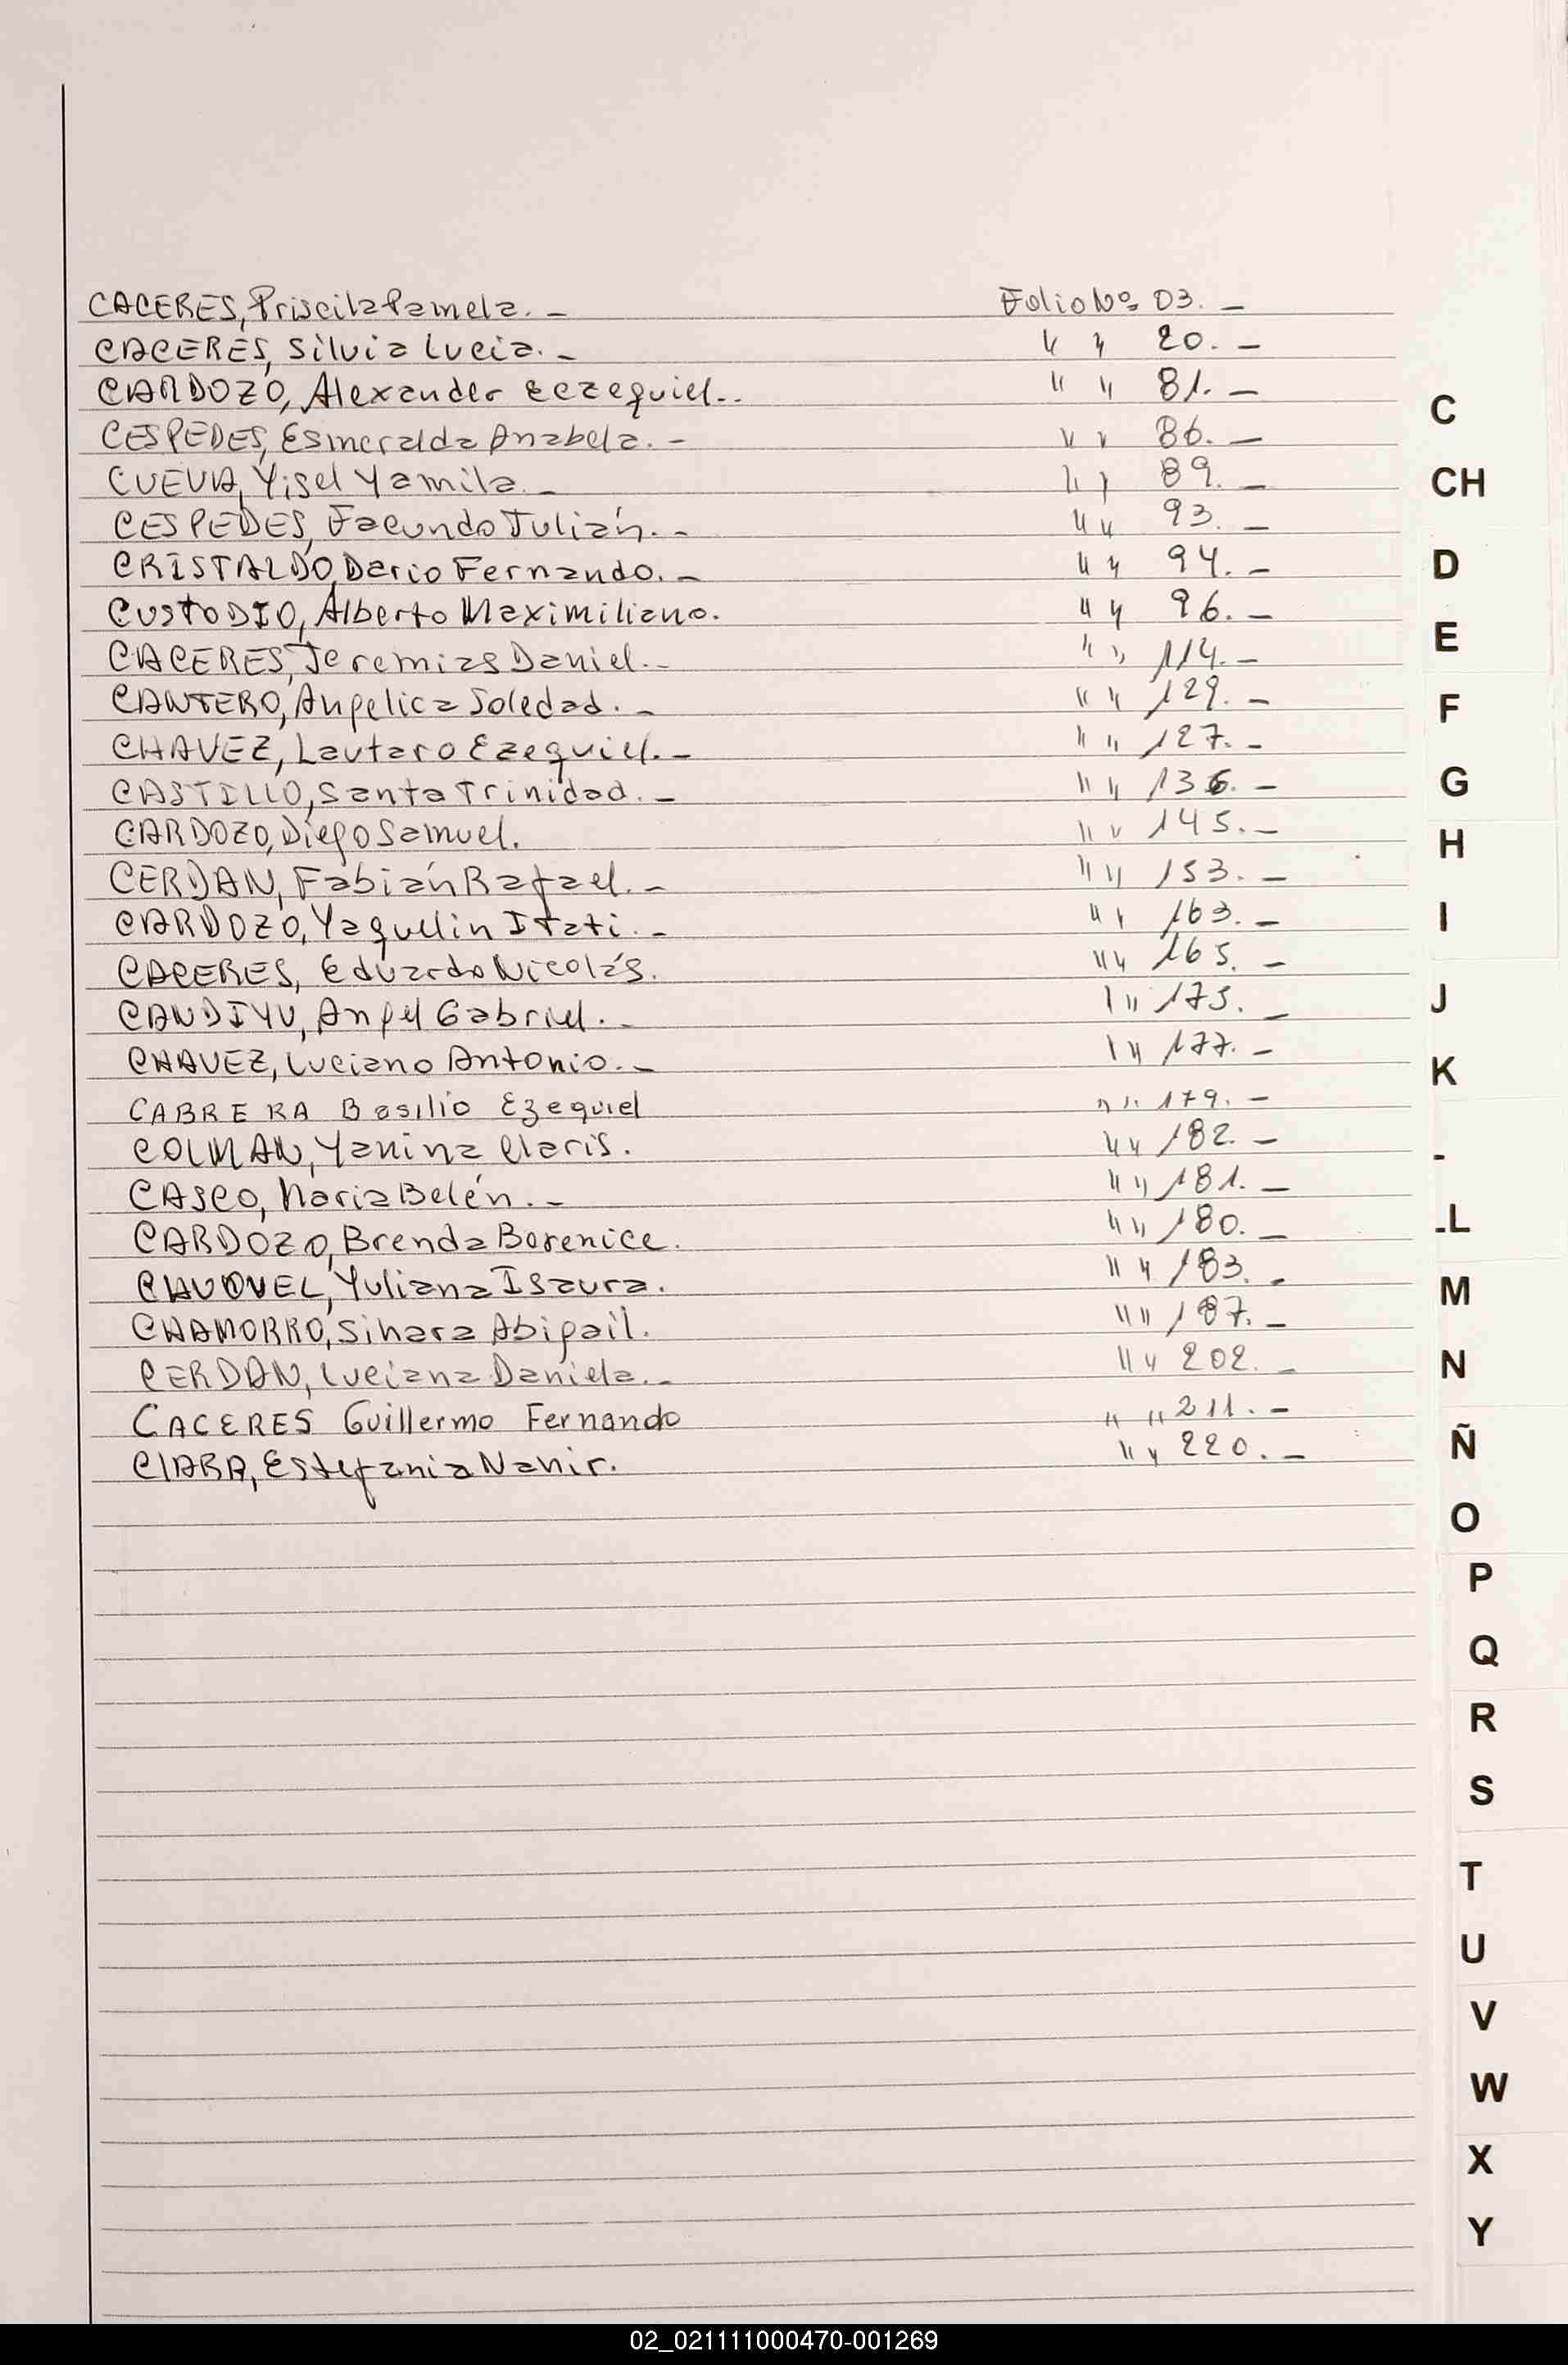 CACERES, Priscila Pamela. — Folio Nº 03. —
CACERES, Silvia Lucia. — " " 20. —
CARDOZO, Alexander Eczequiel.. " " 81. —
CESPEDES, Esmeralda Anabela. — " " 86. —
CUEVA, Yisel Yamila. — " " 89. —
CESPEDES, Facundo Julián. — " " 93. —
CRISTALDO, Dario Fernando. — " " 94. —
CUSTODIO, Alberto Maximiliano. " " 96. —
CACERES, Jeremias Daniel. — " " 114. —
CANTERO, Angelica Soledad. — " " 129. —
CHAVEZ, Lautaro Ezequiel. — " " 127. —
CASTILLO, Santa Trinidad. — " " 136. —
CARDOZO, Diego Samuel. " " 145. —
CERDAN, Fabián Rafael. — " " 153. —
CARDOZO, Yaquelin Itati. — " " 163. —
CACERES, Eduardo Nicolás. " " 165. —
CANDIYU, Angel Gabriel. — " " 175. —
CHAVEZ, Luciano Antonio. — " " 177. —
CABRERA Basilio Ezequiel " " 179. —
COLMAN, Yanina Claris. " " 182. —
CASCO, Maria Belén. — " " 181. —
CARDOZO, Brenda Berenice. " " 180. —
Yuliana Isaura. " " 183. —
CHAMORRO, Sinara Abigail. " " 187. —
CERDAN, Luciana Daniela. — " " 202. —
CACERES Guillermo Fernando " " 211. —
Estefania Nanir. " " 220. —
C
CH
D
E
F
G
H
I
J
K
-
-L
M
N
Ñ
O
P
Q
R
S
T
U
V
W
X
Y
02_021111000470-001269